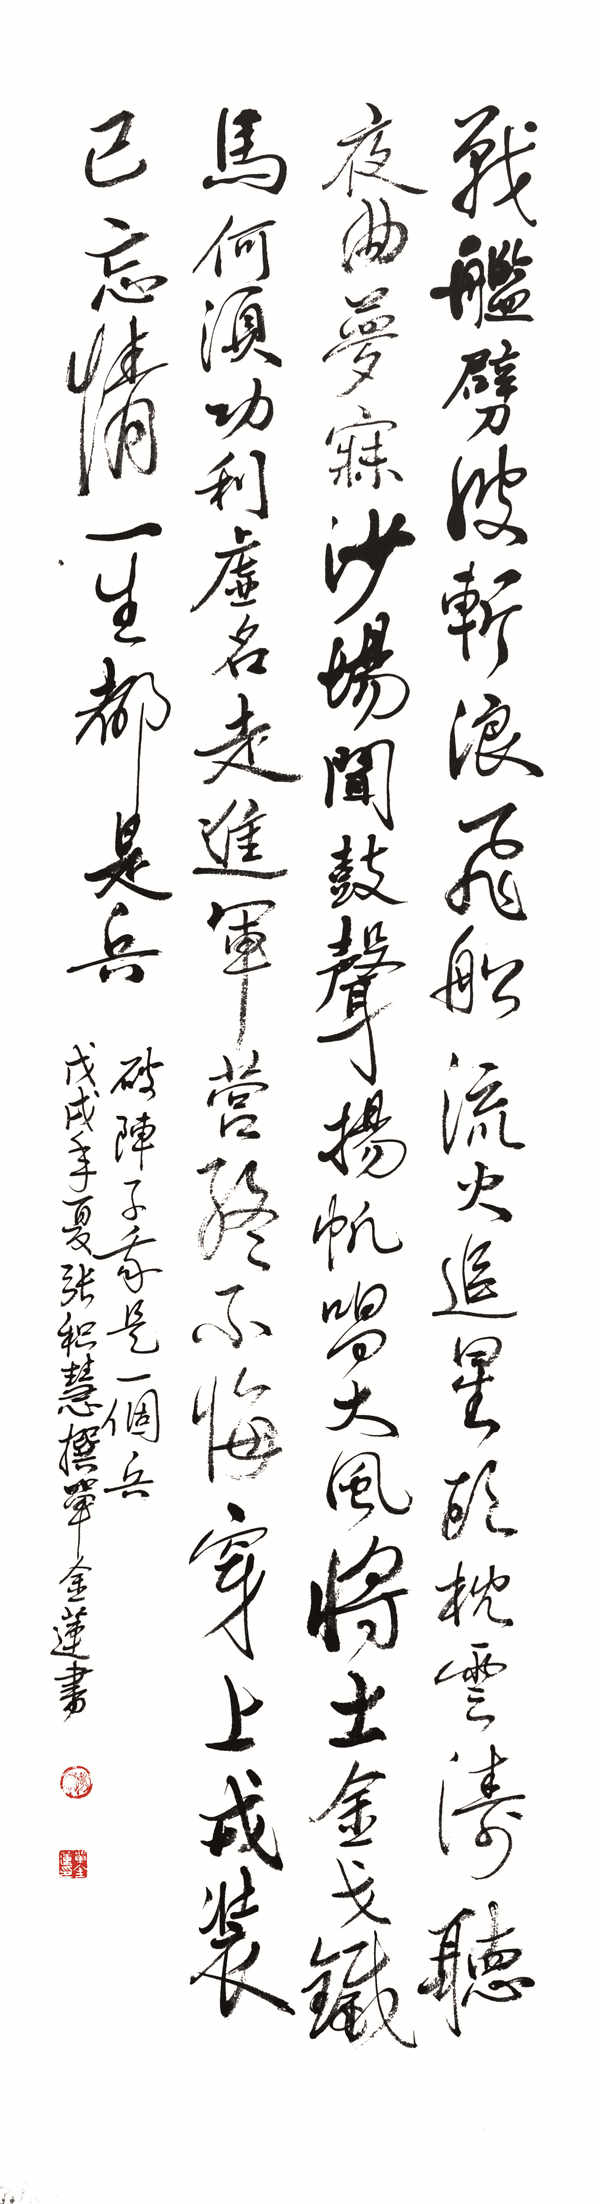 戰艦劈波斬浪飛船流火追星頭枕雲濤聽
夜曲夢寐沙場聞鼓聲揚帆唱大風將士金戈鐵
馬何須功利虛名走進軍營終不悔穿上戎裝
已忘情一生都是兵
破陣子我是一個兵
戊戌年夏张积慧撰單金蓮書